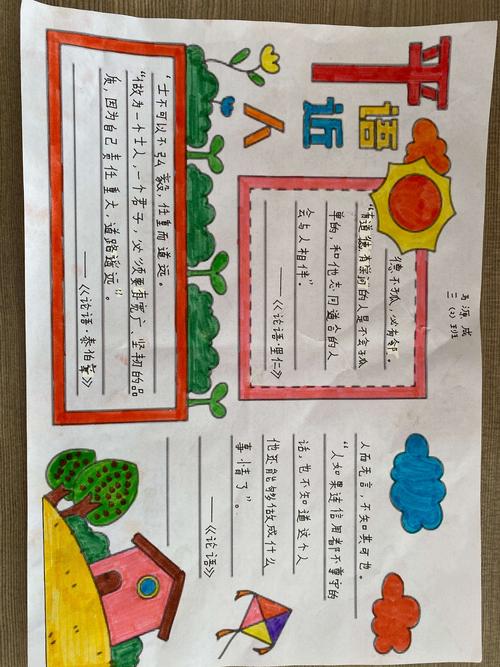 平语近人
三（2）班
德不孤，必有邻。
“有道德有学问的人是不会孤
单的，和他志同道合的人
会与人相伴”。
——《论语·里仁》
士不可以不弘毅，任重而道远。
“做为一个士人，一个君子，必须要有宽广、坚韧的品
质，因为自己责任重大，道路遥远”。
——《论语·泰伯章》
人而无言，不知其可也。
“人如果连信用都不重字的
话，也不知道这个人
他还能够做成什么
事情了”。
——《论语》